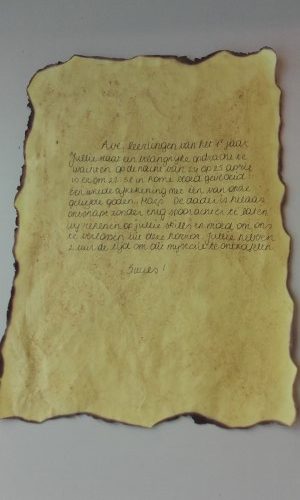 Ave, leerlingen van het 1e jaar
Jullie een belangrijke
waren op de nacht van 24 op 25 april
is er om 21:38 in Rome bloed gevloeid
Een wrede afrekening met één van onze
geliefde goden, Mars. De dader is helaas
ontsnapt zonder enig spoor achter te laten
wij rekenen op jullie skills en moed om ons
te verlossen uit deze horror. Jullie hebben
2 uur de tijd om dit mysterie te ontrafelen.
!